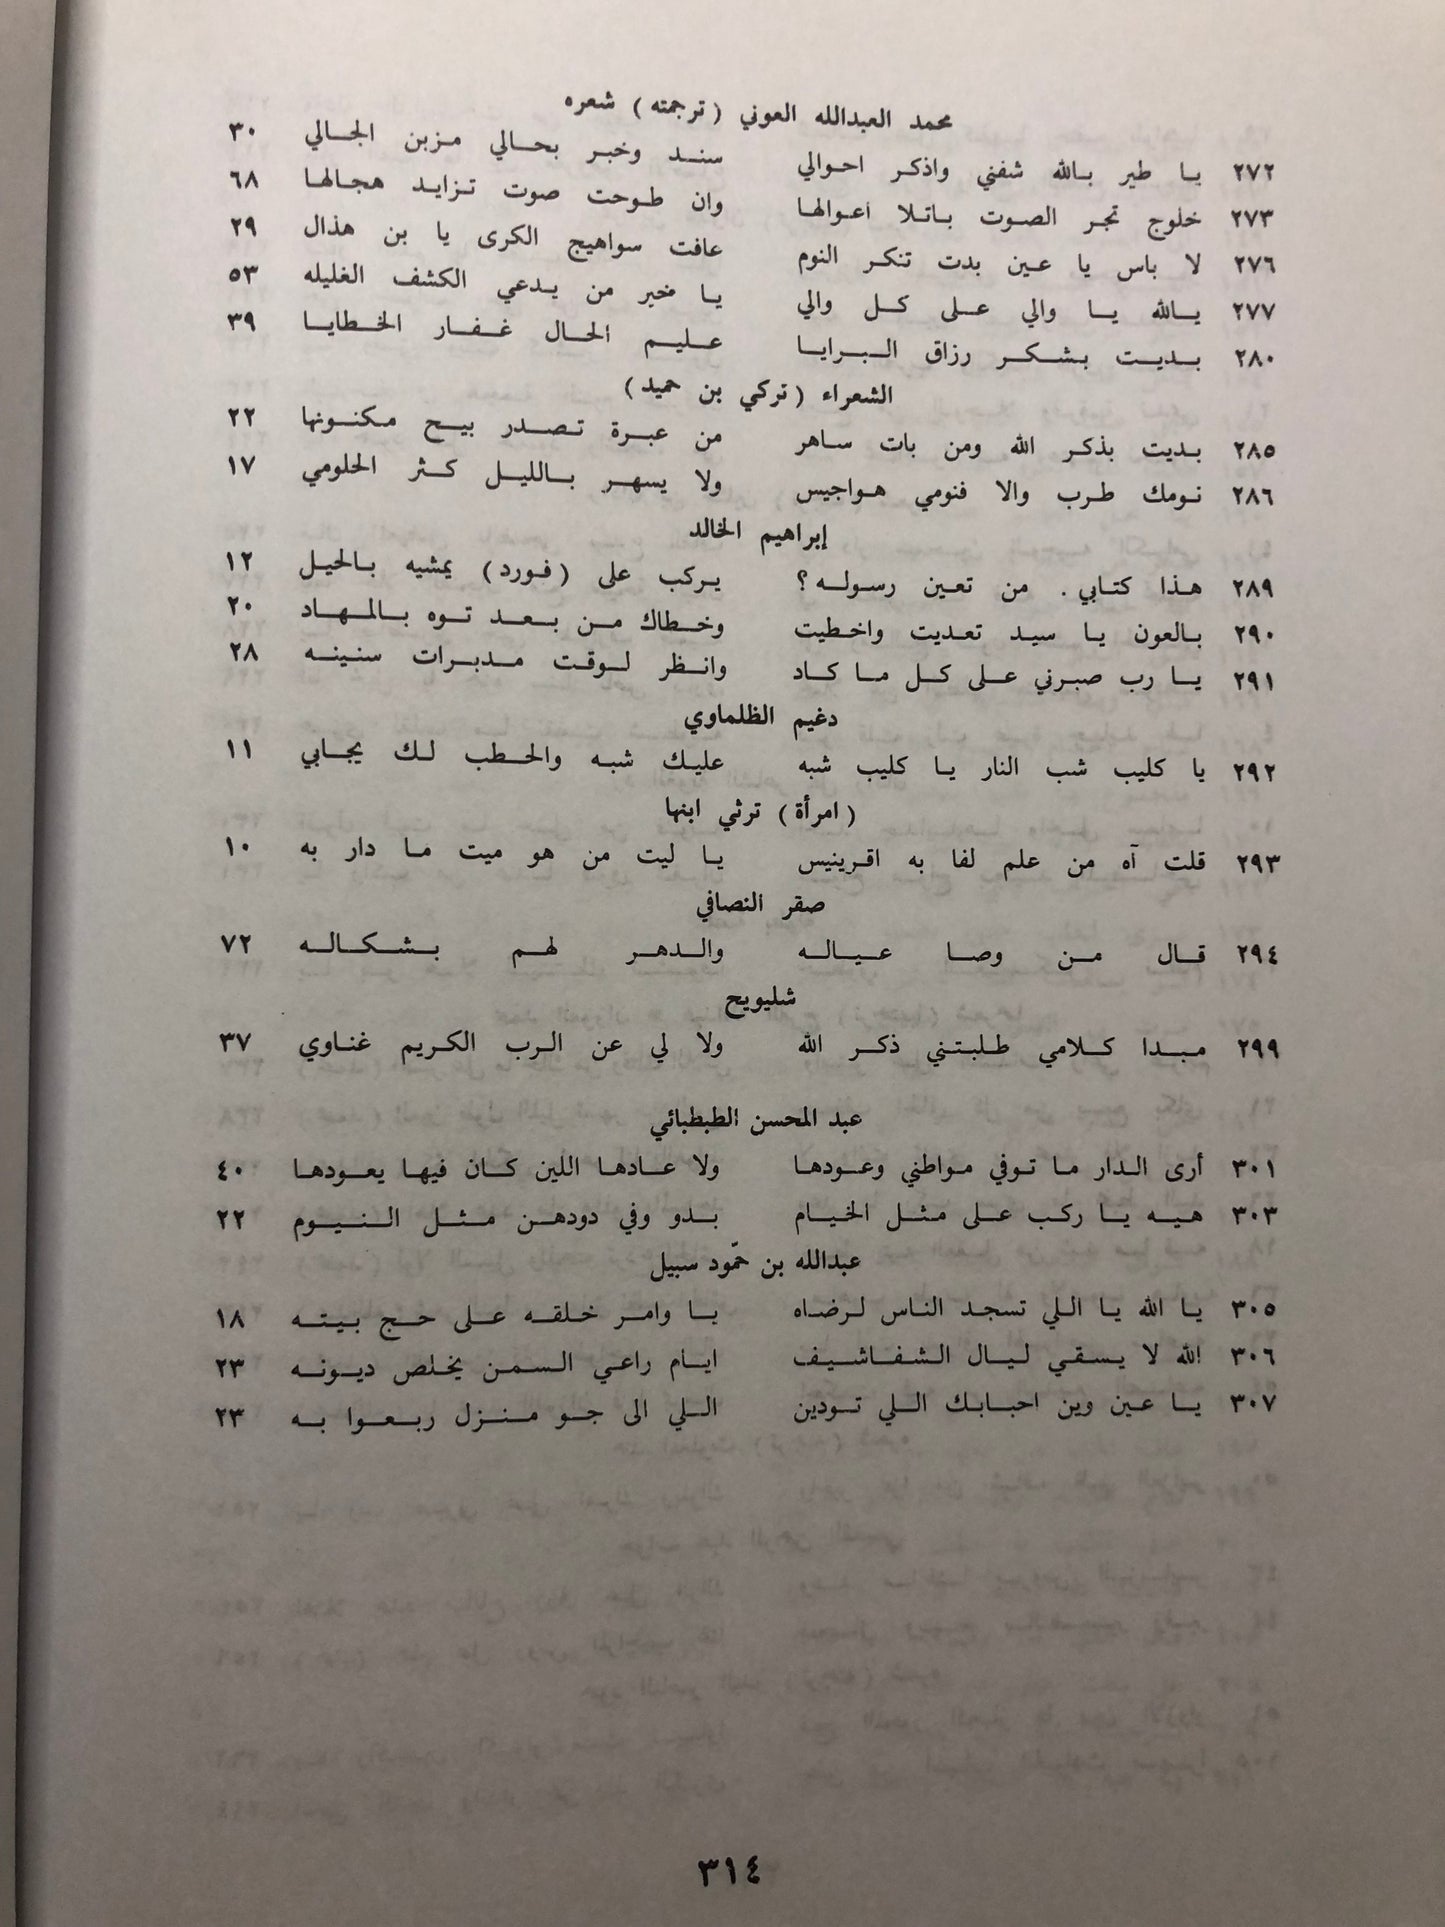 محمد العبدالله العوني (ترجمته) شعره
٢٧٢ يا طير بالله شفني واذكر احوالي سند وخبر بحالي مزبن الجالي ٣٠
٢٧٣ خلوج تجر الصوت باتلا اعوالها وان طوحت صوت تزايد هجالها ٦٨
٢٧٦ لا باس يا عين بدت تنكر النوم عافت سواهيج الكرى يا بن هذال ٢٩
٢٧٧ يالله يا والي على كل والي يا خير من يدعي الكشف الغليله ٥٣
٢٨٠ بديت بشكر رزاق البرايا عليم الحال غفار الخطايا ٣٩
الشعراء (تركي بن حميد)
٢٨٥ بديت بذكر الله ومن بات ساهر من عبرة تصدر بيح مكنونها ٢٢
٢٨٦ نومك طرب والا فنومي هواجيس ولا يسهر بالليل كثر الحلومي ١٧
إبراهيم الخالد
٢٨٩ هذا كتابي . من تعين رسوله؟ يركب على (فورد) يمشيه بالحيل ١٢
٢٩٠ بالعون يا سيد تعديت واخطيت وخطاك من بعد توه بالمهاد ٢٠
٢٩١ يا رب صبرني على كل ما كاد وانظر لوقت مدبرات سنينه ٢٨
دغيم الظلماوي
٢٩٢ يا كليب شب النار يا كليب شبه عليك شبه والحطب لك يجابي ١١
(امرأة) ترثي ابنها
٢٩٣ قلت آه من علم لفا به اقرينيس يا ليت من هو ميت ما دار به ١٠
صقر النصافي
٢٩٤ قال من وصا عياله والدهر لهم بشكاله ٧٢
شليويح
٢٩٩ مبدا كلامي طلبتني ذكر الله ولا لي عن الرب الكريم غناوي ٣٧
عبد المحسن الطبطبائي
٣٠١ أرى الدار ما توفي مواطني وعودها ولا عادها اللين كان فيها يعودها ٤٠
٣٠٣ هيه يا ركب على مثل الخيام بدو وفي دودهن مثل النيوم ٢٢
عبدالله بن حمّود سبيل
٣٠٥ يا الله يا اللي تسجد الناس لرضاه يا وامر خلقه على حج بيته ١٨
٣٠٦ الله لا يسقي ليال الشفاشيف ايام راعي السمن يخلص ديونه ٢٣
٣٠٧ يا عين وين احبابك اللي تودين اللي الى جو منزل ربعوا به ٢٣
٣١٤